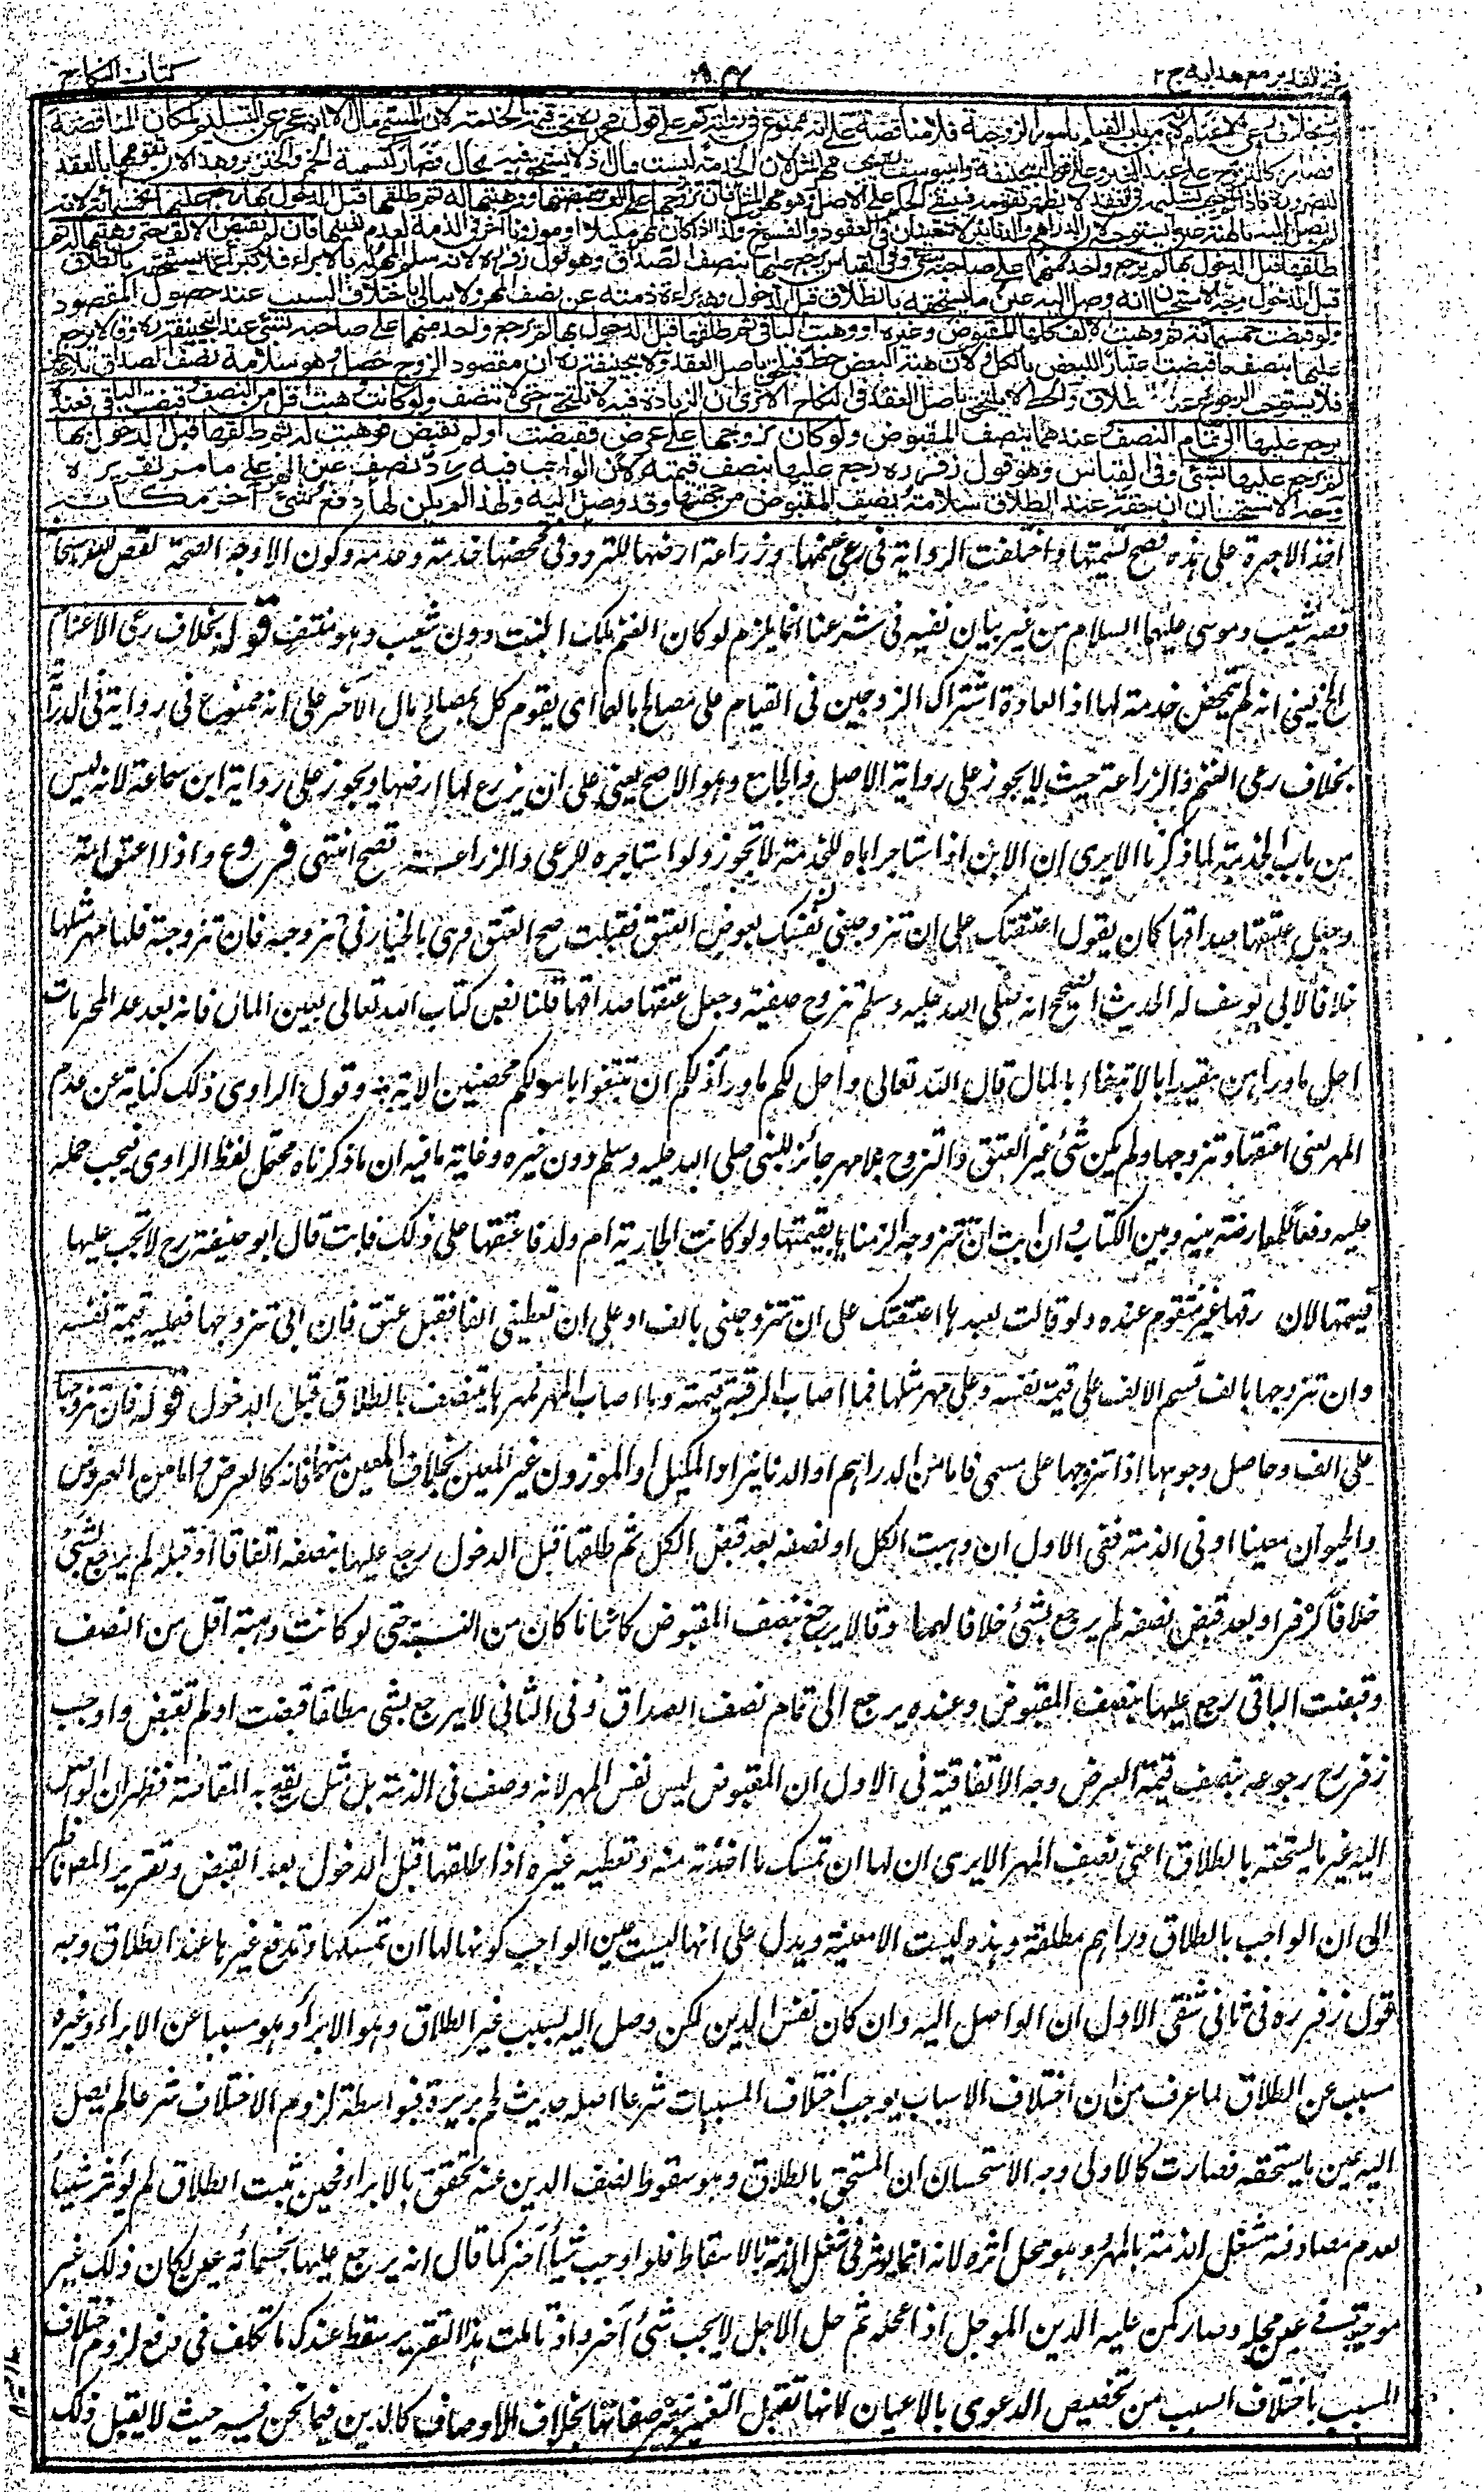 فتح القدير مع هدايه ج ٢ كتاب النكاح
بخلاف رعى الاغنام لانه من باب القيام بامور الزوجية فلا مناقضة على انه ممنوع فى رواية ثم على قول محمد ره تجب قيمة الخدمة لان المسمى مال الا انه عجز عن التسليم لمكان المناقضة
فصار كالتزوج على عبد الغير وعلى قول ابى حنيفة وابى يوسف يجب مهر المثل لان الخدمة ليست بمال اذ لا يستحق فيه بحال فصار كتسمية الخمر والخنزير وهذا لان تقومها بالعقد
للضرورة فاذا لم يجب تسليمه فى العقد لا يظهر تقومه فيبقى الحكم على الاصل وهو مهر المثل فان تزوجها على الف فقبضتها ووهبتها له ثم طلقها قبل الدخول بها رجع عليها بخمسمائة لانه
لم يصل اليه بالهبة عين ما يستوجبه لان الدراهم والدنانير لا تتعينان فى العقود والفسوخ وكذا اذا كان المهر مكيلا او موزونا آخر فى الذمة لعدم تعينها فان لم تقبض الالف حتى وهبتها له ثم
طلقها قبل الدخول بها لم يرجع واحد منهما على صاحبه بشئ وفى القياس يرجع عليها بنصف الصداق وهو قول زفر ره لانه سلم المهر له بالابراء فلا تبرأ عما يستحقه بالطلاق
قبل الدخول وجه الاستحسان انه وصل اليه عين ما يستحقه بالطلاق قبل الدخول وهو براءة ذمته عن نصف المهر ولا يبالى باختلاف السبب عند حصول المقصود
ولو قبضت خمسمائة ثم وهبت الالف كلها المقبوض وغيره او وهبت الباقى ثم طلقها قبل الدخول بها لم يرجع واحد منهما على صاحبه بشئ عند ابى حنيفة ره وقالا يرجع
عليها بنصف ما قبضت اعتبارا للبعض بالكل ولان هبة البعض حط فيلتحق باصل العقد ولابى حنيفة ره ان مقصود الزوج حصل وهو سلامة نصف الصداق بلا عوض
فلا يستوجب الرجوع عند الطلاق والحط لا يلتحق باصل العقد فى النكاح الا ترى ان الزيادة فيه لا تلتحق حتى لا تتنصف ولو كانت وهبت اقل من النصف وقبضت الباقى فعنده
يرجع عليها الى تمام النصف وعندهما بنصف المقبوض ولو كان تزوجها على عرض فقبضت او لم تقبض فوهبت له ثم طلقها قبل الدخول بها
لم يرجع عليها بشئ وفى القياس وهو قول زفر ره رجع عليها بنصف قيمته لان الواجب فيه رد نصف عين المهر على ما مر تقريره
وجه الاستحسان ان حقه عند الطلاق سلامة نصف المقبوض من جهتها وقد وصل اليه ولهذا لم يكن لها دفع شئ آخر مكانه
اخذ الاجرة على هذه فصح تسميتها واختلفت الرواية فى رعى غنمها وزراعة ارضها للتردد فى تمحضها خدمة وعدمه وكون الاوجه الصحة لقص الله سبحانه
قصة شعيب وموسى عليهما السلام من غير بيان نفيه فى شرعنا انما يلزم لو كان الغنم ملك البنت دون شعيب وهو منتف قوله بخلاف رعى الاغنام
الخ يعنى انه لم يتمحض خدمة لها اذ العادة اشتراك الزوجين فى القيام على مصالح مالهما اى يقوم كل بمصالح مال الآخر على انه ممنوع فى رواية فى الدراية
بخلاف رعى الغنم والزراعة حيث لا يجوز على رواية الاصل والجامع وهو الاصح يعنى على ان يزرع لها ارضها ويجوز على رواية ابن سماعة لانه ليس
من باب الخدمة لما ذكرنا الا يرى ان الابن اذا استاجر اباه للخدمة لا تجوز ولو استاجره للرعى والزراعة تصح انتهى فروع واذا اعتق امة
وجعل عتقها صداقها كان يقول اعتقتك على ان تزوجينى نفسك بعوض العتق فقبلت صح العتق وهى بالخيار فى تزوجه فان تزوجته فلها مهر مثلها
خلافا لابى يوسف له الحديث الصحيح انه صلى الله عليه وسلم تزوج صفية وجعل عتقها صداقها قلنا نص كتاب الله تعالى يعين المال فانه بعد عد المحرمات
احل ما وراءهن مقيدا بالابتغاء بالمال قال الله تعالى واحل لكم ما وراء ذلكم ان تبتغوا باموالكم محصنين الآية وقول الراوى ذلك كناية عن عدم
المهر يعنى اعتقها وتزوجها ولم يكن شئ غير العتق والتزوج بلا مهر جائز للنبى صلى الله عليه وسلم دون غيره وغاية ما فيه ان ما ذكرناه محتمل لفظ الراوى فيجب حمله
عليه دفعا للمعارضة بينه وبين الكتاب وان ابت ان تتزوجه الزمناها بقيمتها ولو كانت الجارية ام ولد فاعتقها على ذلك فابت قال ابو حنيفة رح لا تجب عليها
قيمتها لان رقها غير متقوم عنده ولو قالت لعبدها اعتقتك على ان تتزوجنى بالف او على ان تعطينى الفا فقبل عتق فان ابى تزوجها فعليه قيمة نفسه
وان تزوجها بالف قسم الالف على قيمة نفسه وعلى مهر مثلها فما اصاب الرقبة قيمته وما اصاب المهر مهرها يتنصف بالطلاق قبل الدخول قوله فان تزوجها
على الف وحاصل وجوهها اذا تزوجها على مسمى فاما من الدراهم او الدنانير او المكيل او الموزون غير المعين بخلاف المعين منهما فانه كالعرض واما من العروض
والحيوان معينا او فى الذمة ففى الاول ان وهبت الكل او نصفه بعد قبض الكل ثم طلقها قبل الدخول رجع عليها بنصفه اتفاقا او قبله لم يرجع بشئ
خلافا لزفر او بعد قبض نصفه لم يرجع بشئ خلافا لهما وقالا يرجع بنصف المقبوض كائنا ما كان من النسبة حتى لو كانت وهبته اقل من النصف
وقبضت الباقى رجع عليها بنصف المقبوض وعنده يرجع الى تمام نصف الصداق وفى الثانى لا يرجع بشئ مطلقا قبضت او لم تقبض واوجب
زفر رح رجوعه بنصف قيمة العرض وجه الاتفاقية فى الاول ان المقبوض ليس نفس المهر لانه وصف فى الذمة بل مثل تقع به المقاصة فظهر ان الواصل
اليه غير ما يستحقه بالطلاق اعنى نصف المهر الا يرى ان لها ان تمسك ما اخذته منه وتعطيه غيره اذا طلقها قبل الدخول بعد القبض وتقرير المصنف ناظر
الى ان الواجب بالطلاق دراهم مطلقة وهذه ليست الا معينة ويدل على انها ليست عين الواجب كونها لها ان تمسكها وتدفع غيرها عند الطلاق وجه
قول زفر ره فى ثانى شقى الاول ان الواصل اليه وان كان نفس الدين لكن وصل اليه بسبب غير الطلاق وهو الابراء وهو مسببا عن الابراء وغيره
مسبب عن الطلاق لما عرف من ان اختلاف الاسباب يوجب اختلاف المسببات شرعا اصله حديث لحم بريرة فبواسطة لزوم الاختلاف شرعا لم يصل
اليه عين ما يستحقه فصارت كالاولى وجه الاستحسان ان المستحق بالطلاق وهو سقوط نصف الدين عنه تحقق بالابراء فحين ثبت الطلاق لم يؤثر شيئا
لعدم مصادفته شغل الذمة بالمهر وهو محل اثره لانه انما يؤثر فى شغل الذمة بالاسقاط فلو اوجب شيئا آخر كما قال انه يرجع عليها بخمسمائة عين لكان ذلك غير
موجبه فى غير محله وصار كمن عليه الدين المؤجل اذا عجله ثم حل الاجل لا يجب شئ آخر واذ تاملت هذا التقرير سقط عندك ما تكلف فى دفع لزوم اختلاف
المسبب باختلاف السبب من تخصيص الدعوى بالاعيان لانها تقبل التغير بتغير صفاتها بخلاف الاوصاف كالدين فيما نحن فيه حيث لا يقبل ذلك